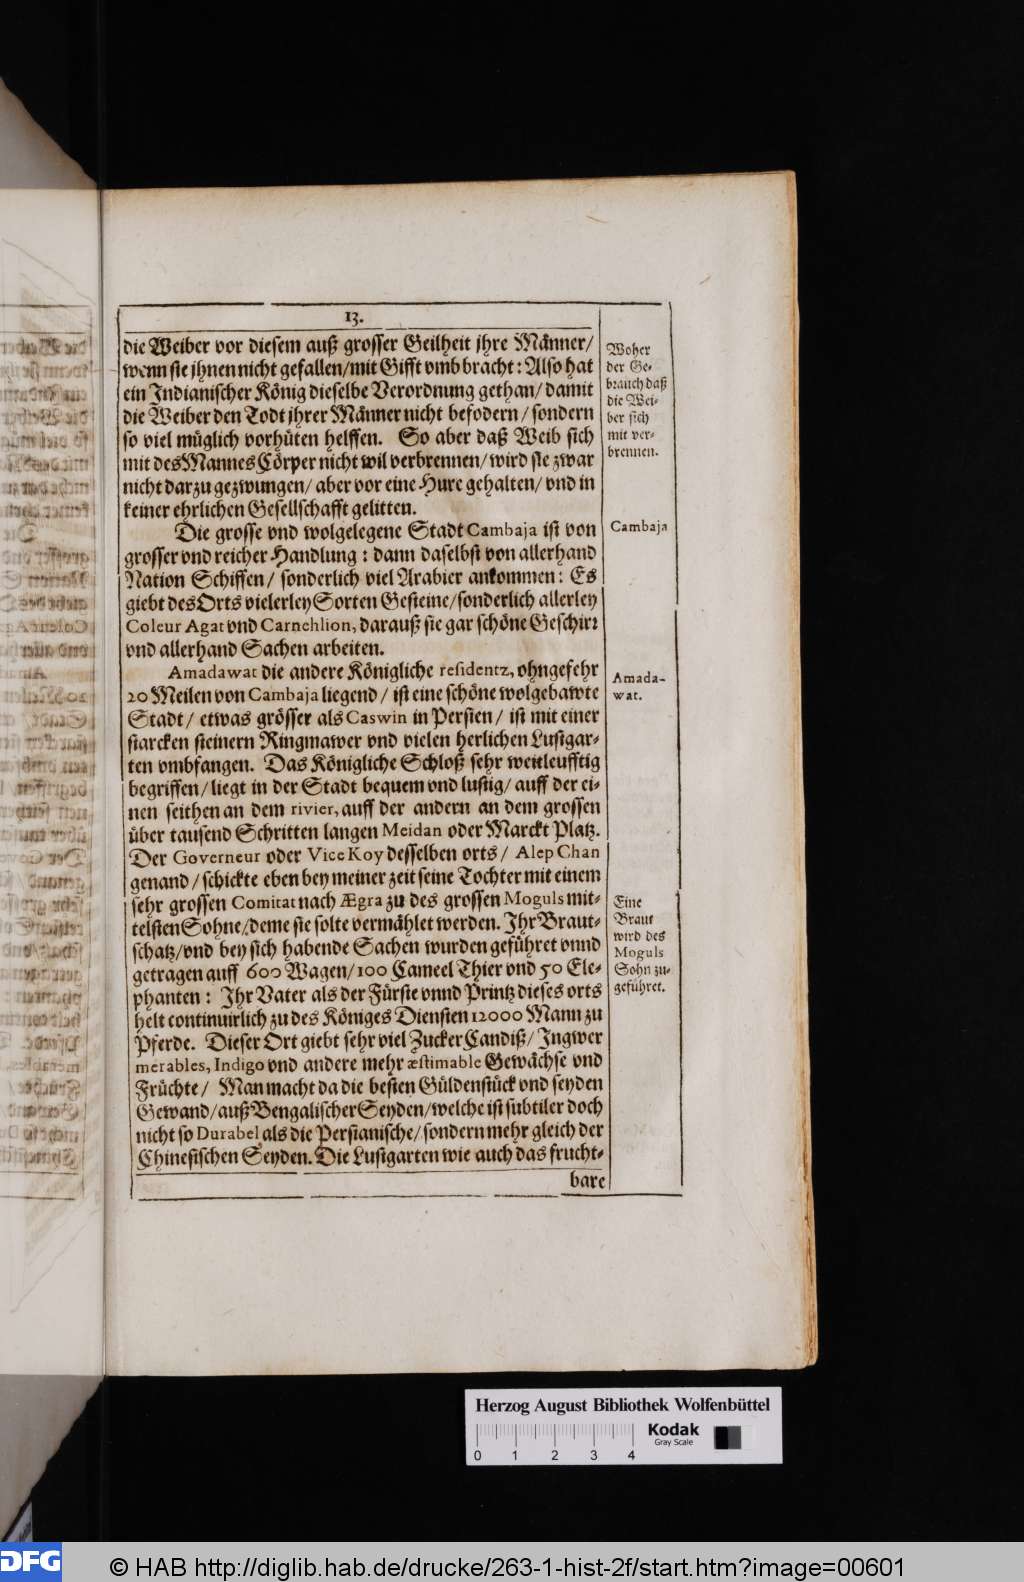 13.
die Weiber vor diesem auß grosser Geilheit jhre Männer/
wenn sie jhnen nicht gefallen/mit Gifft vmb bracht: Also hat
ein Indianischer König dieselbe Verordnung gethan/ damit
die Weiber den Todt jhrer Männer nicht befodern/ sondern
so viel müglich vorhüten helffen. So aber daß Weib sich
mit des Mannes Cörper nicht wil verbrennen/ wird sie zwar
nicht darzu gezwungen/ aber vor eine Hure gehalten/ vnd in
keiner ehrlichen Gesellschafft gelitten.
Die grosse vnd wolgelegene Stadt Cambaja ist von
grosser vnd reicher Handlung: dann daselbst von allerhand
Nation Schiffen/ sonderlich viel Arabier ankommen: Es
giebt des Orts vielerley Sorten Gesteine/sonderlich allerley
Coleur Agat vnd Carnehlion, darauß sie gar schöne Geschirr
vnd allerhand Sachen arbeiten.
Amadawat die andere Königliche residentz, ohngefehr
20 Meilen von Cambaja liegend/ ist eine schöne wolgebawte
Stadt/ etwas grösser als Caswin in Persien/ ist mit einer
starcken steinern Ringmawer vnd vielen herlichen Lustgar-
ten vmbfangen. Das Königliche Schloß sehr weitleufftig
begriffen/ liegt in der Stadt bequem vnd lustig/ auff der ei-
nen seithen an dem rivier, auff der andern an dem grossen
über tausend Schritten langen Meidan oder Marckt Platz.
Der Governeur oder Vice Koy desselben orts/ Alep Chan
genand/ schickte eben bey meiner zeit seine Tochter mit einem
sehr grossen Comitat nach Ægra zu des grossen Moguls mit-
telsten Sohne/deme sie solte vermählet werden. Jhr Braut-
schatz/vnd bey sich habende Sachen wurden geführet vnnd
getragen auff 600 Wagen/ 100 Cameel Thier vnd 50 Ele-
phanten: Jhr Vater als der Fürste vnnd Printz dieses orts
helt continuirlich zu des Königes Diensten 12000 Mann zu
Pferde. Dieser Ort giebt sehr viel Zucker Candiß/ Ingwer
merables, Indigo vnd andere mehr æstimable Gewächse vnd
Früchte/ Man macht da die besten Güldenstück vnd seyden
Gewand/auß Bengalischer Seyden/welche ist subtiler doch
nicht so Durabel als die Persianische/ sondern mehr gleich der
Chinesischen Seyden. Die Lustgarten wie auch das frucht-
bare
Woher
der Ge-
brauch daß
die Wei-
ber sich
mit ver-
brennen.
Cambaja
Amada-
wat.
Eine
Braut
wird des
Moguls
Sohn zu-
geführet.
Herzog August Bibliothek Wolfenbüttel
Kodak
Gray Scale
0 1 2 3 4
DFG
© HAB http://diglib.hab.de/drucke/263-1-hist-2f/start.htm?image=00601